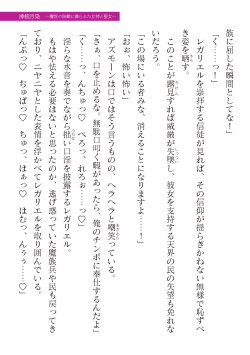 神核汚染 ～魔悦の胎動に濡らされた女神と聖女～
族に屈した瞬間としてな！」
「くぅ……っ！」
レガリエルを崇拝する信徒が見れば、その信仰が揺らぎかねない無様で恥ずべ
き姿を晒す。
このことが露見すれば威厳が失墜し、彼女を支持する天界の民の失望も免れな
いだろう。
「この場にいる者みな、消えることになりますよ……っ」
「おお、怖い怖い」
アズモーンは口ではそう言うものの、ヘラヘラと嘲笑っている。
「さぁ、口を止めるな。無駄口叩く暇があったら、俺のチンポに奉仕するんだよ」
「くぅ……♡　ぺろっ、れろぉ……っ♡」
淫らな水音を奏でながら拙い口淫を披露するレガリエル。
もはや怯える必要はないと思ったのか、逃げ惑っていた魔族兵や民も戻ってき
ており、ニヤニヤとした表情を浮かべてレガリエルを取り囲んでいる。
「んぷっ♡　ちゅぱっ♡　ちゅっ、はぁっ♡　はむっ、んぅぅ……っ♡」